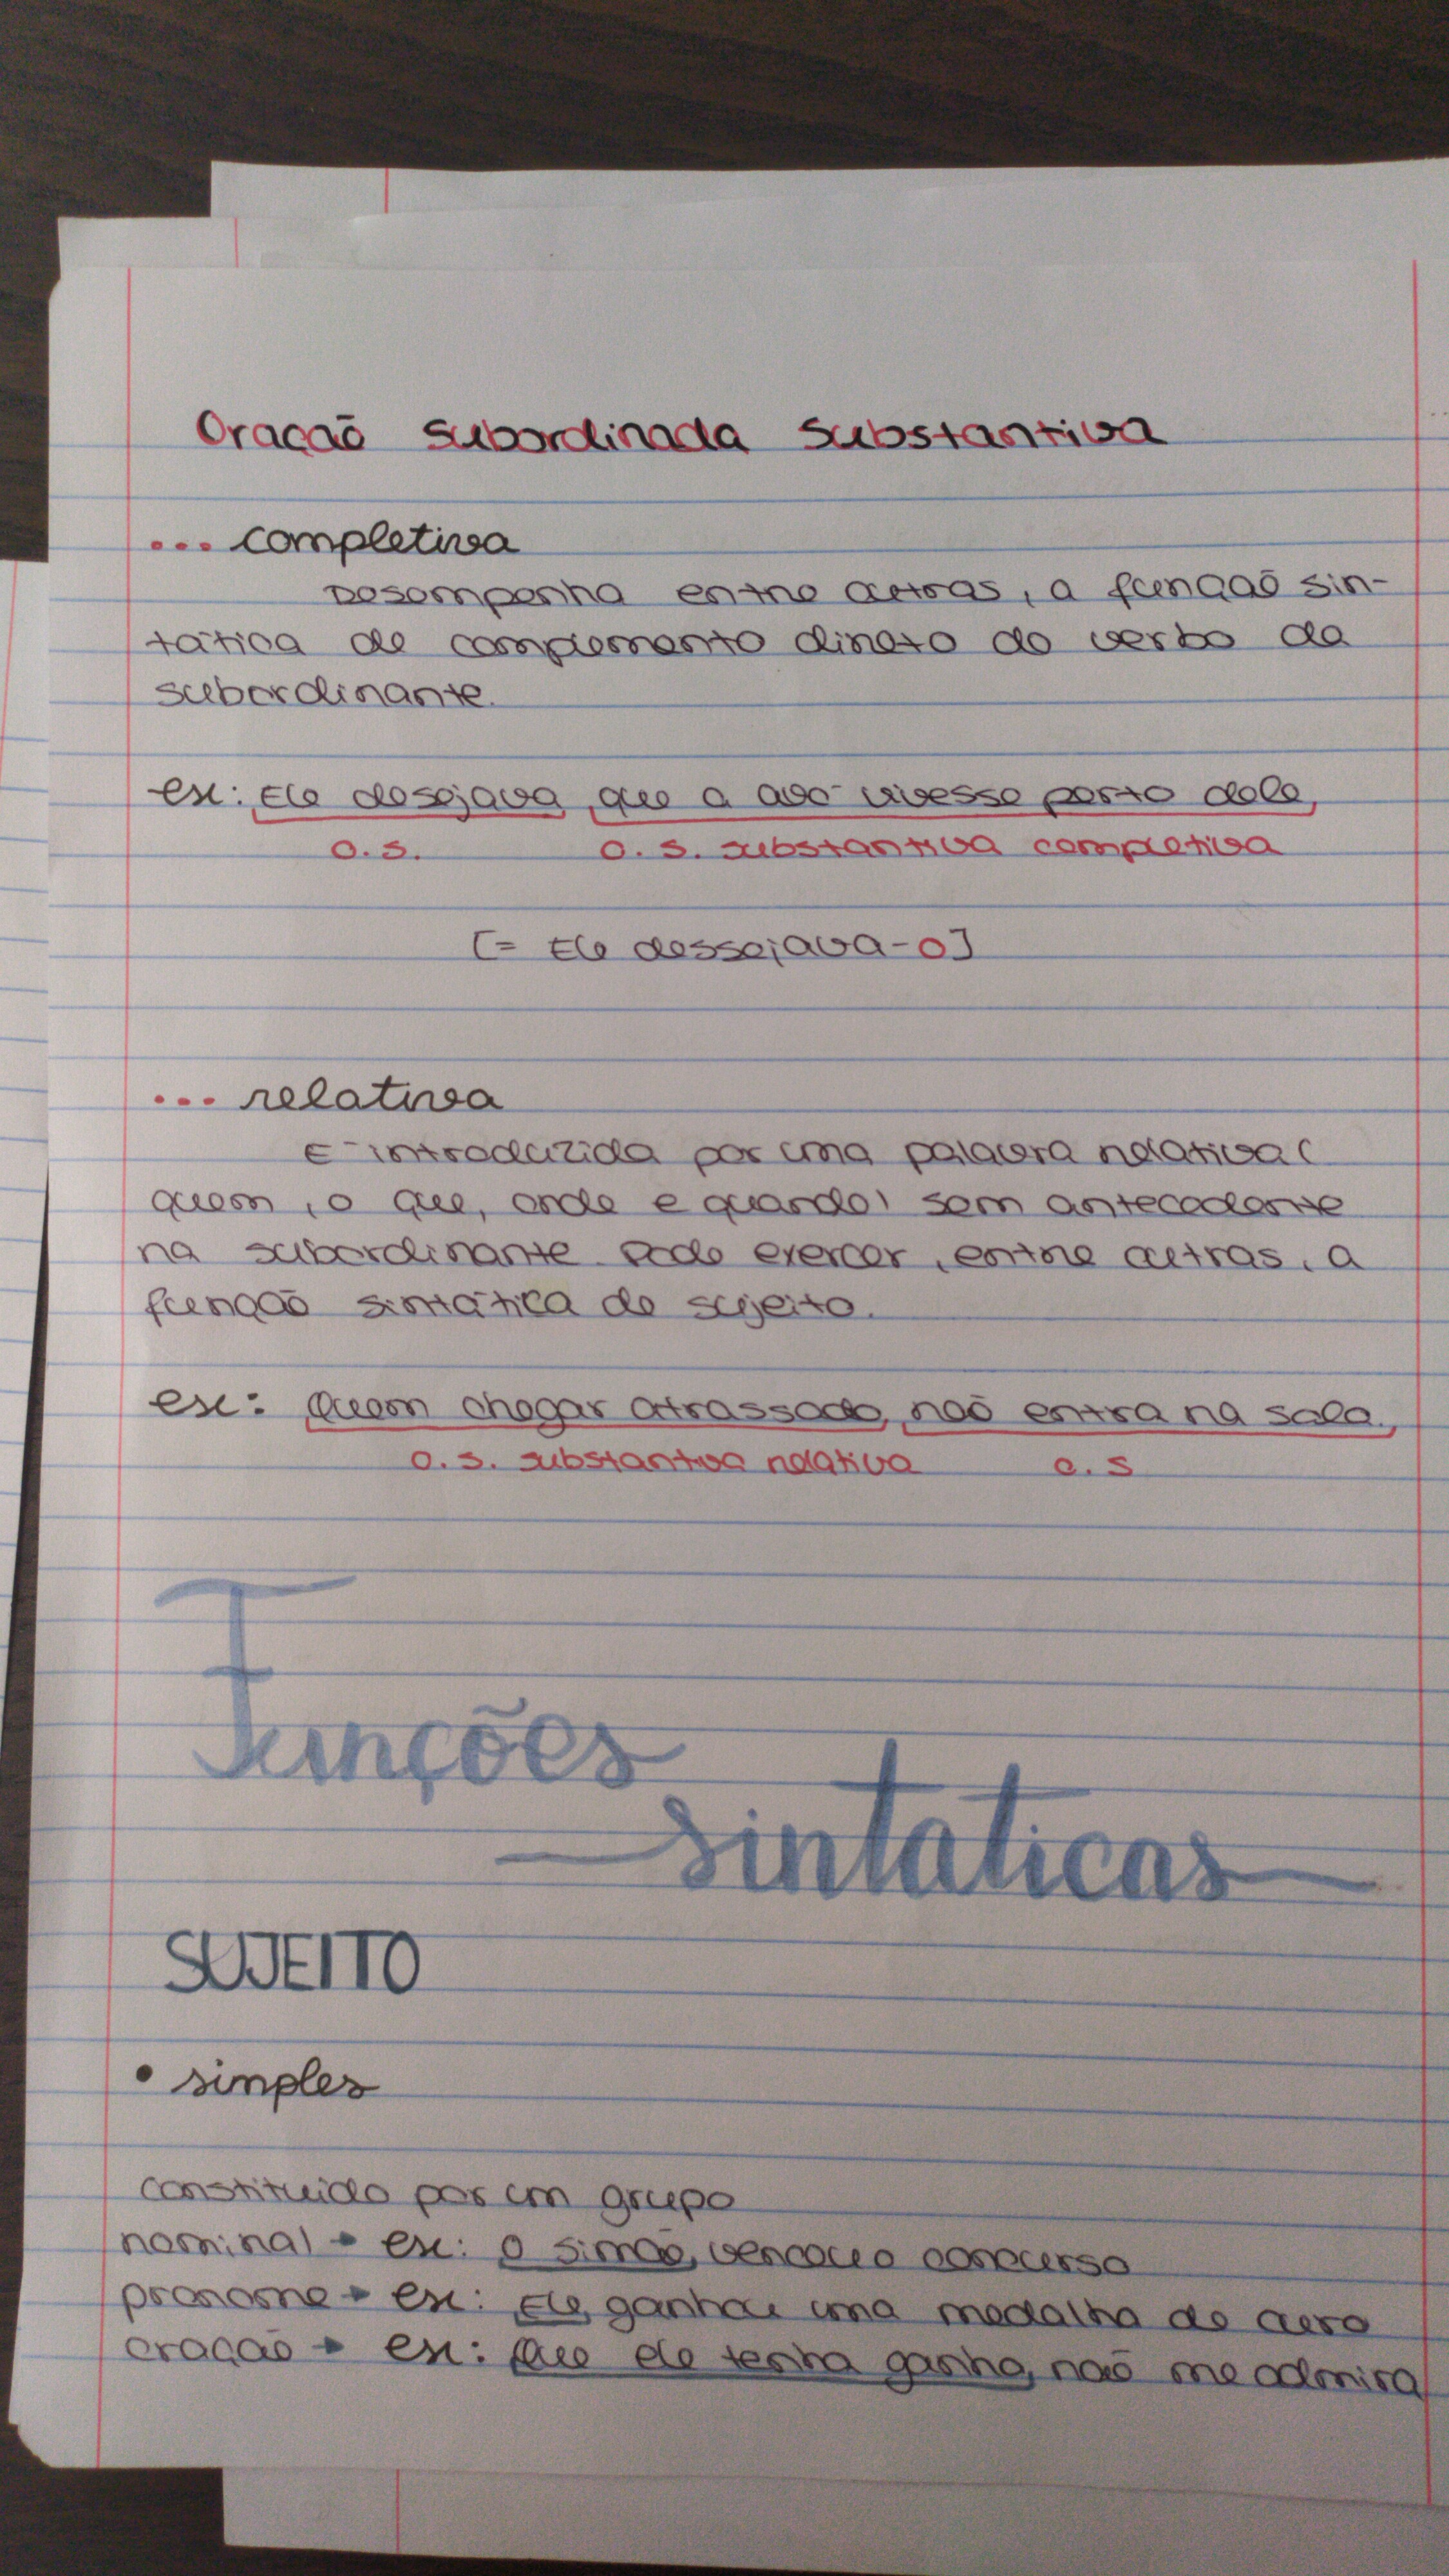 Oração subordinada substantiva
... completiva
Desempenha entre outras, a função sin-
tática de complemento direto do verbo da
subordinante.
ex: Ele desejava que a avó vivesse perto dele,
O.S. O.S. substantiva completiva
[= Ele dessejava-o]
... relativa
É introduzida por uma palavra relativa (
quem, o que, onde e quando) sem antecedente
na subordinante. Pode exercer, entre outras, a
função sintática de sujeito.
ex: Quem chegar atrassado, não entra na sala.
O.S. substantiva relativa O.S
Funções
sintaticas
SUJEITO
• simples
constituido por um grupo
nominal → ex: O Simão, venceu o concurso
pronome → ex: Ele ganhou uma medalha de ouro
oração → ex: Que ele tenha ganho, não me admira